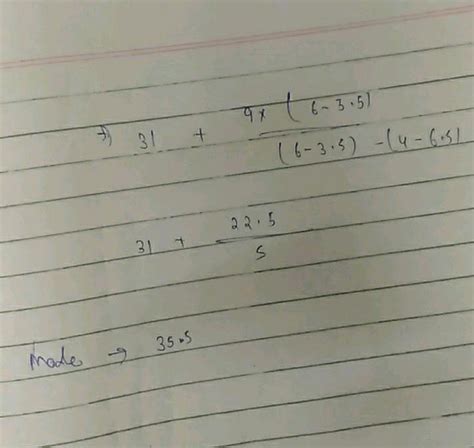 ⇒ 31 + 9x (6-3.5)
(6-3.5) - (4-6.5)
31 + 22.5
5
Mode → 35.5